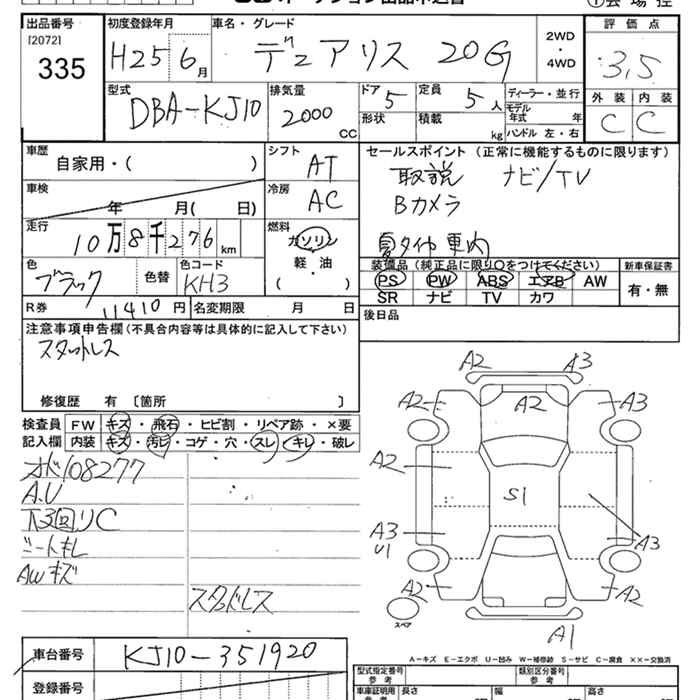 出品番号 初度登録年月 車名・グレード 2WD・4WD 評価点
[2072]
335 H25 6月 デュアリス 20G 3.5
外装 内装
C C
型式 排気量 ドア 定員 ディーラー・並行
DBA-KJ10 2000CC 5 5人 モデル年式 年
形状 積載 kg ハンドル 左・右
車歴 シフト セールスポイント(正常に機能するものに限ります)
自家用・( ) AT 取説 ナビ/TV
車検 冷房 Bカメラ
年 月( 日) AC
走行 燃料
10万8千276km ガソリン 夏タイヤ車内
軽油
( )
色 色替 色コード 装備品(純正品に限り○をつけてください) 新車保証書
ブラック KH3 PS PW ABS エアB AW 有・無
SR ナビ TV カワ
R券 11410円 名変期限 月 日 後日品
注意事項申告欄(不具合内容等は具体的に記入して下さい)
スタットレス
修復歴 有〔箇所 〕
検査員 FW キズ・飛石・ヒビ割・リペア跡・×要
記入欄 内装 キズ・汚ビ・コゲ・穴・スレ・キレ・破レ
108277
A.U
シートキレ
AWキズ
スタッドレス
A2 A3
A2 A2 A3
A2
S1
A3
U1
A3
A2 A2
A1
スペア
A-キズ E-エクボ U-凹み W-補修跡 S-サビ C-腐食 ××-交換済
車台番号 KJ10-351920
登録番号
型式指定番号 参考 類別区分番号 参考
車庫証明用 参考 長さ 幅 高さ